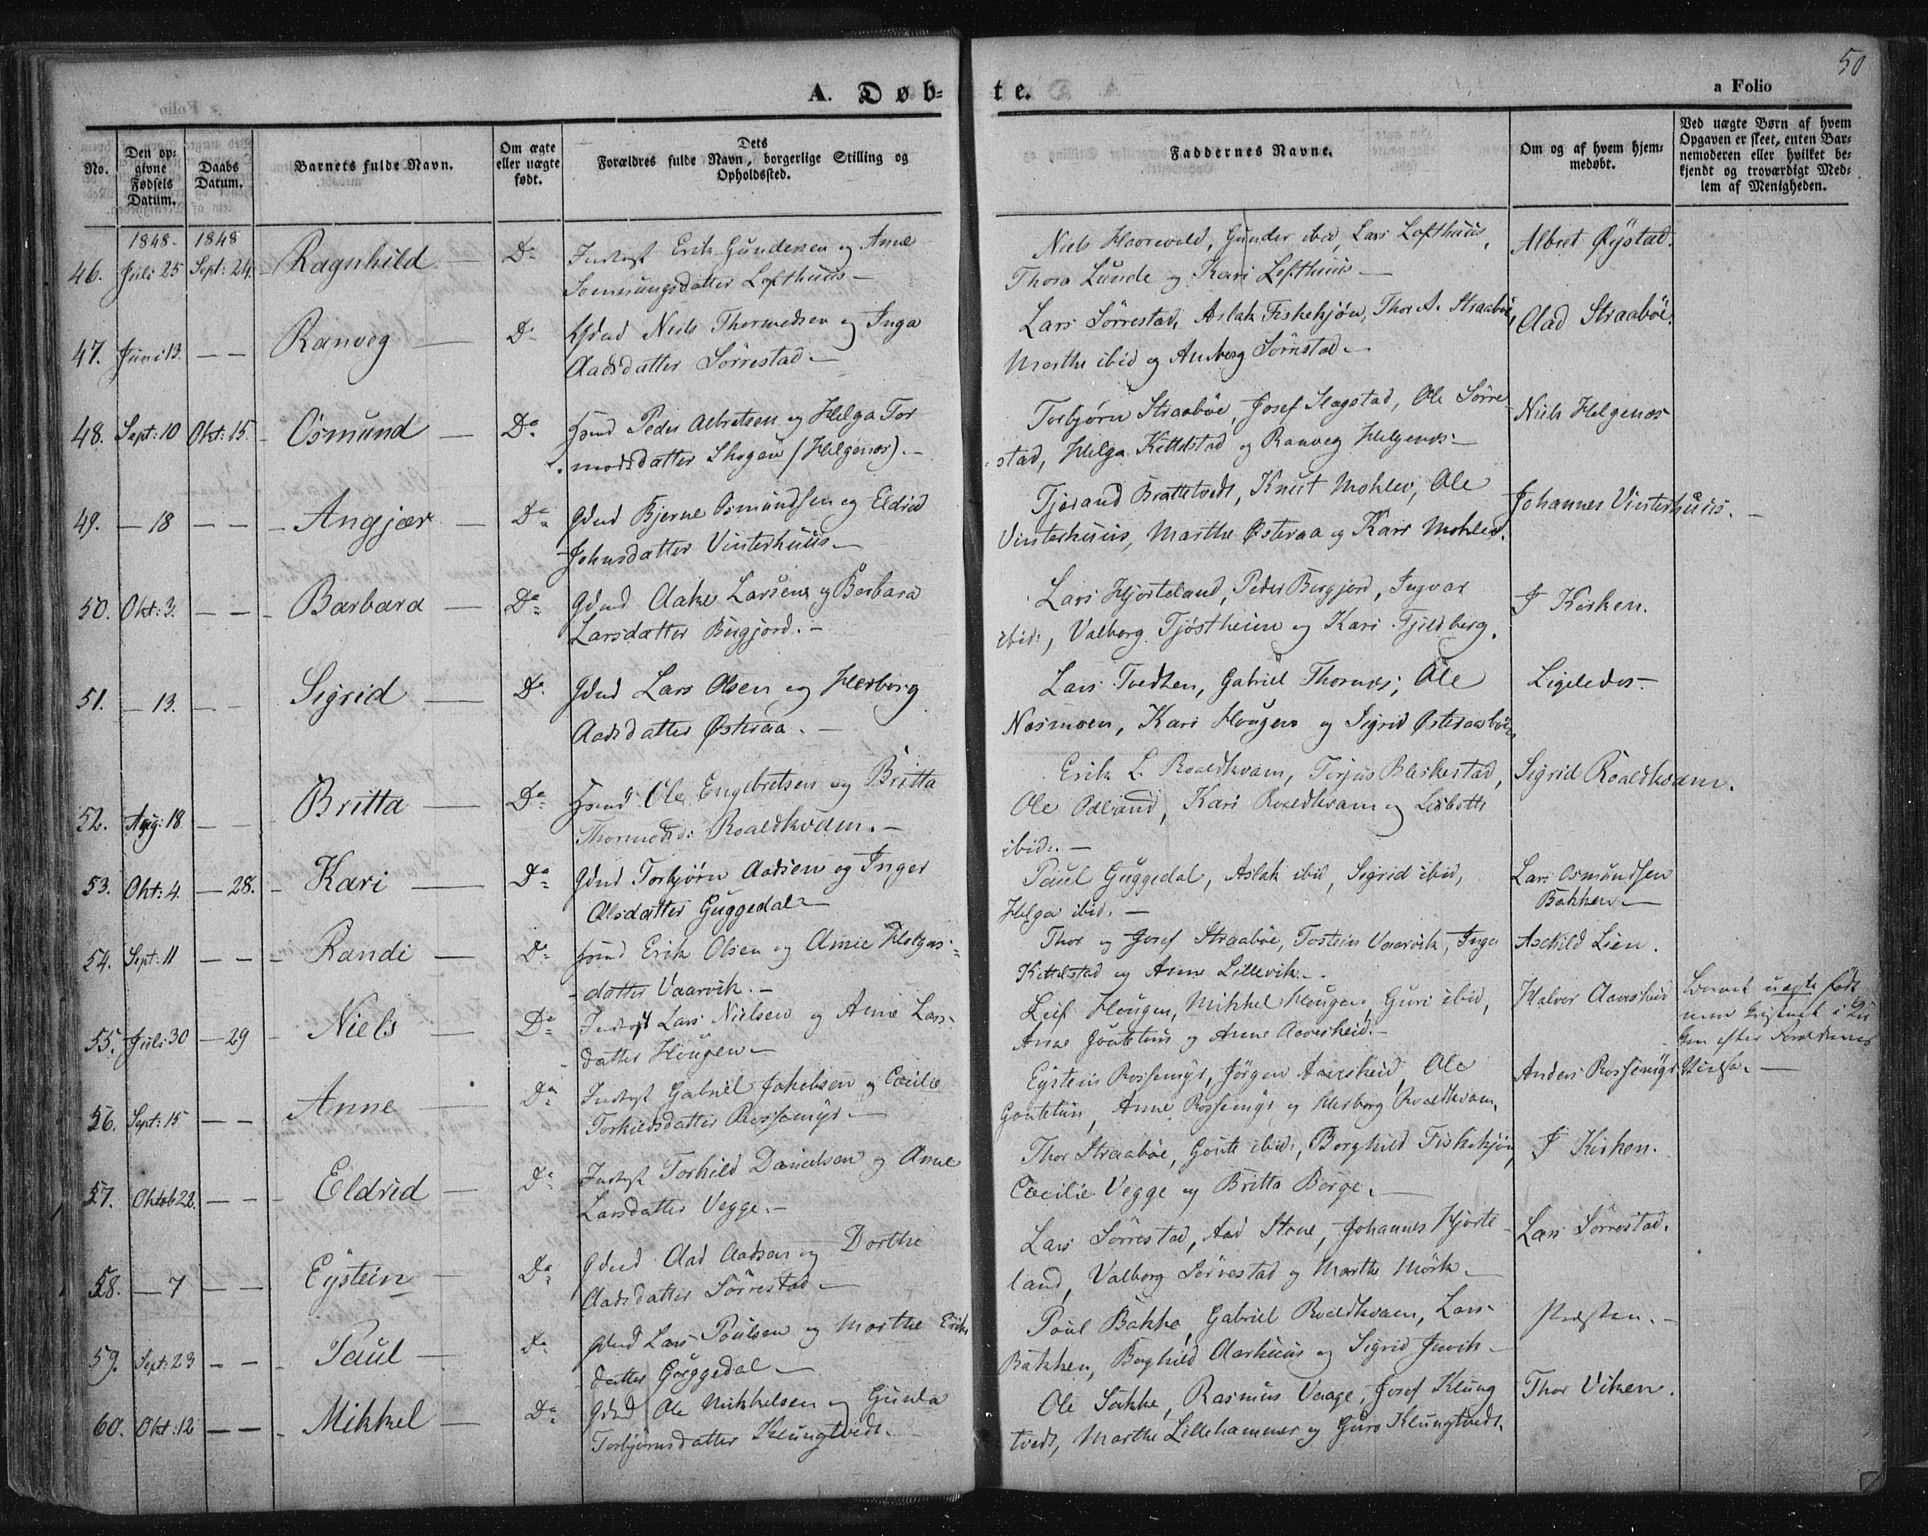 50
A. Døb-
te.
a Folio
No.
Den op-
givne
Fødsels
Datum.
Daabs
Datum.
Barnets fulde Navn.
Om ægte
eller uægte
født.
Dets
Forældres fulde Navn, borgerlige Stilling og
Opholdssted.
Faddernes Navne.
Om og af hvem hjem-
medøbt.
Ved uægte Børn af hvem
Opgaven er skeet, enten Bar-
nemoderen eller hvilket be-
kjendt og troværdigt Med-
lem af Menigheden.
1848. 1848
46. Juli 25 Sept: 24. Ragnhild — Do Inderst Erik Gundersen og Anne
Lofthuus —
Niels Gunder ibid, Lars Lofthuus,
Thora Lunde og Kari Lofthuus —
Albret Øystad.
47. Juni 13. — — Ranveg — Do Niels Thormodsen og Inga
Aadsdatter Sørrestad —
Lars Sørrestad, Aslak Fiskekjøn, Thor A. Straabøe,
Marthe ibid og Anberg Sørrestad —
Aad Straabøe.
48. Sept: 10 Okt: 15. Osmund — Do Hsmd Peder Albretsen og Helga Tor
modsdatter Skogen (Helgenæs). —
Torbjørn Straabøe, Josef Slagstad, Ole Sørre-
stad, Helga Kittelstad og Ranveg Helgenæs —
Niels Helgenæs
49. — 18 — — Angjær — Do Gdmd Bjerne Osmundsen og Eldrid
Johnsdatter Vinterhuus —
Tjerand Brattetvedt, Knut Mohlev, Ole
Vinterhuus, Marthe Østeraa og Kari Mohlev.
Johannes Vinterhuus. —
50. Okt: 3. — — Barbara — Do Gdmd Aake Larsen og Barbara
Larsdatter Bergjord. —
Lars Hjorteland, Peder Bergjord, Ingvar
ibid:, Valborg Tjøstheim og Kari Fjeldberg.
I Kirken.
51. — 13. — — Sigrid — Do Gdmd Lars Olsen og Herborg
Aadsdatter Østeraa. —
Lars Tvedten, Gabriel Thornæs, Ole
Næsmoen, Kari Hougen og Sigrid Østeraabøe
Ligeledes —
52. Aug: 18. — — Britta — Do Hsmd Ole Engebretsen og Britta
Thormodsd: Roaldkvam. —
Erik L. Roaldkvam, Torjus Blaskestad,
Ole Odland, Kari Roaldkvam og Lisbeth
ibid. —
Sigrid Roaldkvam.
53. Okt: 4 — 28. Kari — Do Gdmd Torbjørn Aadsen og Inger
Olsdatter Guggedal —
Paul Guggedal, Aslak ibid, Sigrid ibid,
Helga ibid. —
Lars Osmundsen
Bakken —
54. Sept: 11 — — Randi — Do Hsmd Erik Olsen og Anne Helges-
datter Vaarvik. —
Thor og Josef Straabøe, Tostein Vaarvik, Inga
Kittelstad og Anne Lillevik —
Askild Lien.
55. Juli 30 — 29 Niels — Do Inderst Lars Nielsen og Anne Lars-
datter Hougen —
Leif Hougen, Mikkel Hougen, Guri ibid,
Anne Goutetun og Anne Aaresheid —
Halvor Aaresheid
Barnet uægte født
men
efter Forældrenes
56. Sept: 15 Anne — Do Inderst Gabriel Jakobsen og Cecilie
Torkildsdatter Rossemyr —
Eystein Rossemyr, Jørgen Aaresheid, Ole
Goutetun, Anne Rossemyr og Herborg Roaldkvam.
Anders Rossemyr
57. Oktob 22. — — Eldrid — Do Inderst Torkild Danielsen og Anne
Larsdatter Vegge. —
Thor Straabøe, Goute ibid, Borghild Fiskekjøn,
Cecilie Vegge og Britta Borge. —
I Kirken.
58. — 7 — — Eystein — Do Gdmd Aad Aadsen og Dorthe
Aadsdatter Sørrestad —
Lars Sørrestad, Aad Stene, Johannes Hjorte-
land, Valborg Sørrestad og Marthe Mørk —
Lars Sørrestad.
59. Sept: 23 — — Paul — Do Gdmd Lars Poulsen og Marthe Eriks
datter Guggedal —
Poul Bakke, Gabriel Roaldkvam, Lars
Bakken, Borghild Aarhuus og Sigrid Juvik —
Præsten. —
60. Okt: 12 — — Mikkel — Do Gdmd Ole Mikkelsen og Gunla
Torbjørnsdatter Klungtvedt —
Ole Sakke, Rasmus Vaage, Josef Klung
tvedt, Marthe Lillehammer og Guro Klungtvedt.
Thor Viken.